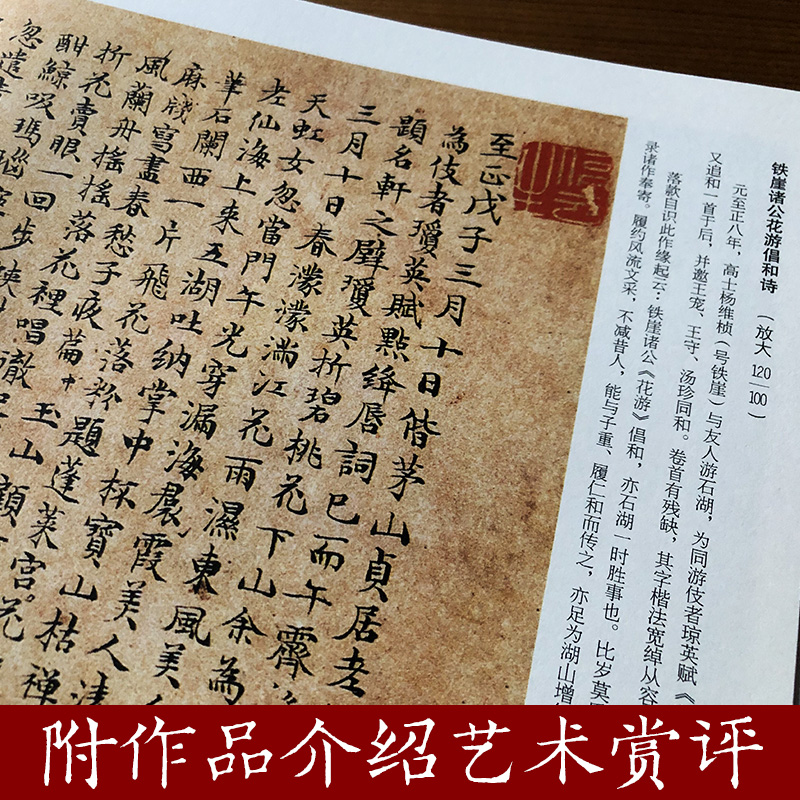 铁崖诸公花游倡和诗 （放大120/100）
元至正八年，高士杨维桢（号铁崖）与友人游石湖，为同游伎者琼英赋《
又追和一首于后，并邀王宠、王守、汤珍同和。卷首有残缺，其字楷法宽绰从容
落款自识此作缘起云：铁崖诸公《花游》倡和，亦石湖一时胜事也。比岁莫
录诸作奉寄。履约风流文采，不减昔人，能与子重、履仁和而传之，亦足为湖山增
至正戊子三月十日偕茅山貞居老
為伎者瓊英賦點絳唇詞已而午霽
題名軒之壁瓊英折碧桃花下山余為
三月十日春濛濛滿江花雨濕東風美
天虹女忽當門午光穿漏海裠霞美人
老仙海上来五湖吐纳掌中杯寶山枯禅
筆石闌西一片飛花落粉題蓬萊宮花
麻牋寫盡春愁子夜篇中
風蘭舟搖搖落花裡唱徹玉山
折花賣眼一回步
酣鯨吸瑪瑙
忽遣
附作品介绍艺术赏评